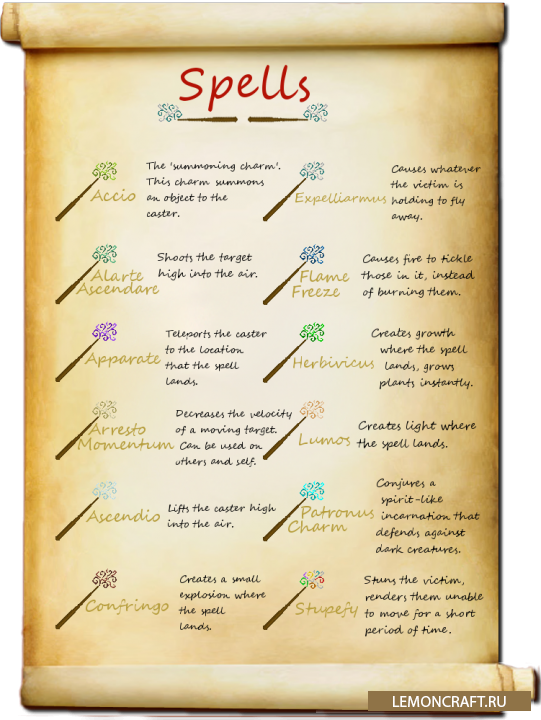 Spells
Accio
The 'summoning charm'.
This charm summons
an object to the
caster.
Expelliarmus
Causes whatever
the victim is
holding to fly
away.
Alarte
Ascendare
Shoots the target
high into the air.
Flame
Freeze
Causes fire to tickle
those in it, instead
of burning them.
Apparate
Teleports the caster
to the location
that the spell
lands.
Herbivicus
Creates growth
where the spell
lands, grows
plants instantly.
Arresto
Momentum
Decreases the velocity
of a moving target.
Can be used on
others and self.
Lumos
Creates light where
the spell lands.
Ascendio
Lifts the caster high
into the air.
Patronus
Charm
Conjures a
spirit-like
incarnation that
defends against
dark creatures.
Confringo
Creates a small
explosion where
the spell
lands.
Stupefy
Stuns the victim,
renders them unable
to move for a short
period of time.
LEMONCRAFT.RU